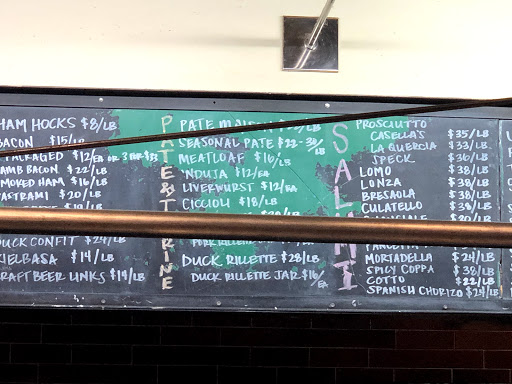 HAM HOCKS $8/LB
BACON $15/LB
PACKAGED $12/EA OR 3 FOR $33
LAMB BACON $22/LB
SMOKED HAM $16/LB
PASTRAMI $20/LB
DUCK CONFIT $24/LB
KIELBASA $14/LB
CRAFT BEER LINKS $14/LB
PATE & TERRINE
PATE MAISON /LB
SEASONAL PATE $22-30/LB
MEATLOAF $16/LB
'NDUJA $12/EA
LIVERWURST $12/EA
CICCIOLI $18/LB
PORK RILLETTE
DUCK RILLETTE $28/LB
DUCK RILLETTE JAR $16/EA
SALUMI
PROSCIUTTO
CASELLA'S $35/LB
LA QUERCIA $33/LB
SPECK $36/LB
LOMO $38/LB
LONZA $38/LB
BRESAOLA $38/LB
CULATELLO $38/LB
GUANCIALE $30/LB
PANCETTA
MORTADELLA $24/LB
SPICY COPPA $38/LB
COTTO $22/LB
SPANISH CHORIZO $24/LB